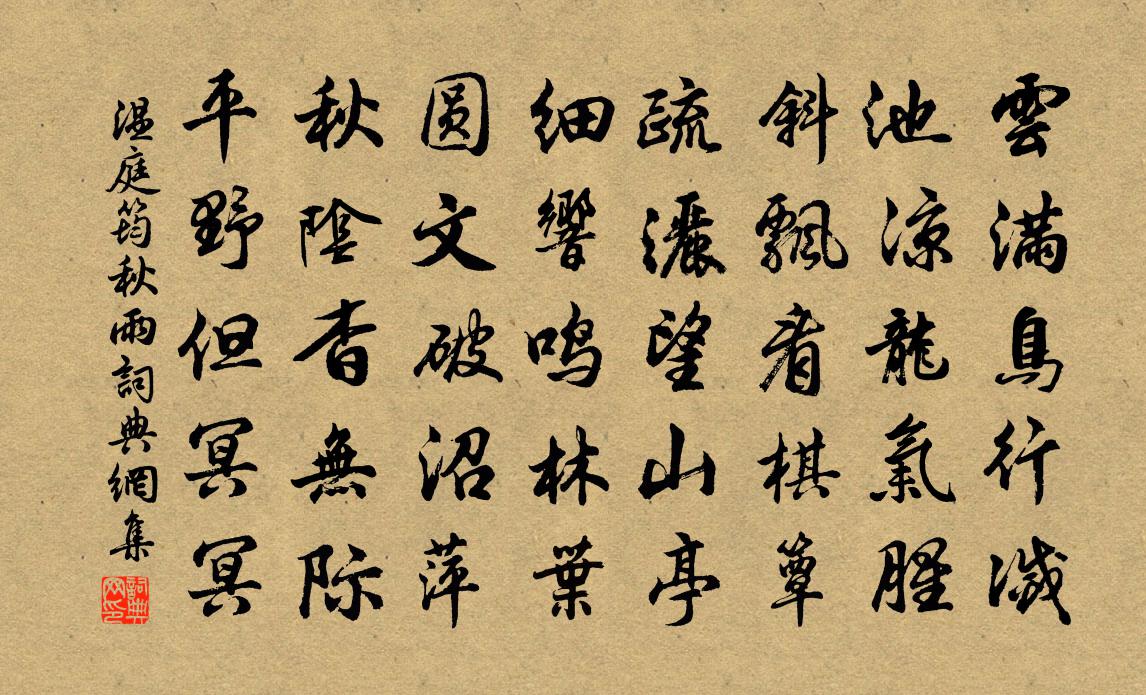 雲滿鳥行滅
池涼龍氣腥
斜飄看棋簟
疏灑望山亭
細響鳴林葉
圓文破沼萍
秋陰杳無際
平野但冥冥
温庭筠秋雨詞典網集
詞典网印